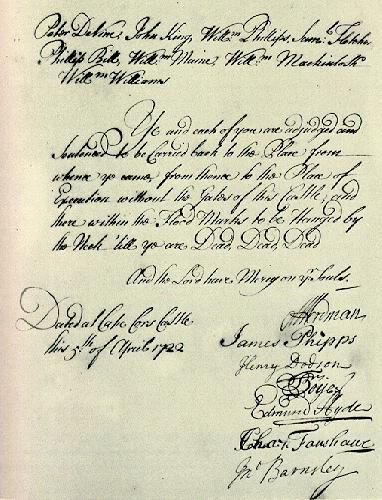 Peter Devine, John King, Willm Phillips, Saml. Fletcher
Phillip Bill, Willm Maine, Willm Mackintosh
Willm Williams
Ye and each of you are adjudged and
Sentenced to be Carried back to the Place from
whence ye came, from thence to the Place of
Execution without the Gates of this Castle, and
there within the Flood Marks to be Hanged by
the Neck 'till ye are Dead, Dead, Dead
And the Lord have Mercy on yr Souls.
Dated at Cape Cors Castle
this 5th of April 1722
Hydman
James Phipps
Henry Dodson
Boye
Edmund Hyde
Char: Fanshaw
Jno Barnsley